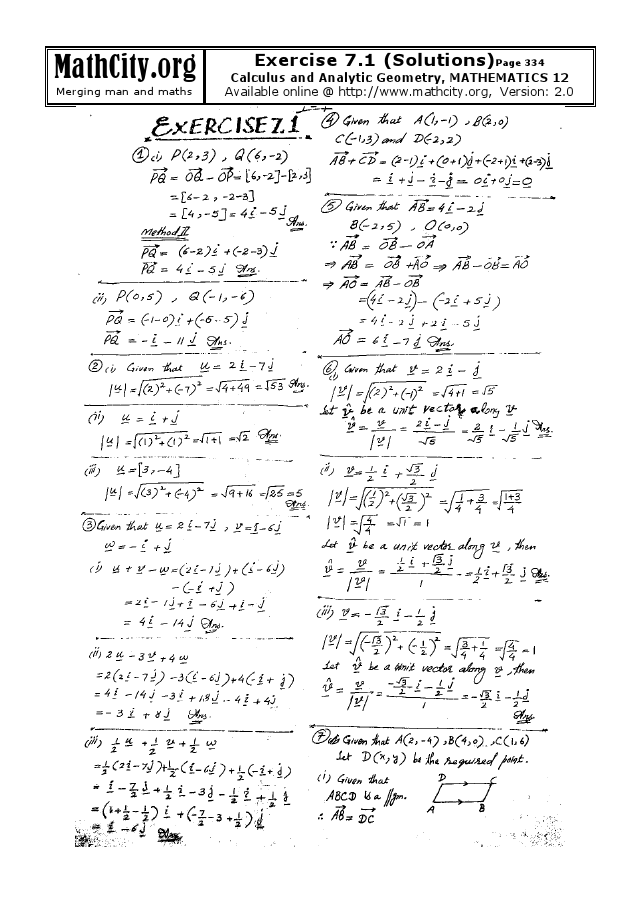 MathCity.org
Merging man and maths
Exercise 7.1 (Solutions)Page 334
Calculus and Analytic Geometry, MATHEMATICS 12
Available online @ http://www.mathcity.org, Version: 2.0
EXERCISE 7.1
① (i) P(2,3) , Q(6,-2)
PQ = OQ - OP = [6,-2]-[2,3]
= [6-2 , -2-3]
= [4,-5] = 4i - 5j Ans.
Method II
PQ = (6-2)i + (-2-3)j
PQ = 4i - 5j Ans.
(ii) P(0,5) , Q(-1,-6)
PQ = (-1-0)i + (-6-5)j
PQ = -i - 11j Ans.
② (i) Given that u = 2i - 7j
|u| = √(2)²+(-7)² = √4+49 = √53 Ans.
(ii) u = i + j
|u| = √(1)²+(1)² = √1+1 = √2 Ans.
(iii) u = [3,-4]
|u| = √(3)²+(-4)² = √9+16 = √25 = 5 Ans.
③ Given that u = 2i - 7j , v = i - 6j
w = -i + j
(i) u + v - w = (2i-7j)+(i-6j)
-(-i+j)
= 2i - 7j + i - 6j + i - j
= 4i - 14j Ans.
(ii) 2u - 3v + 4w
= 2(2i-7j) - 3(i-6j) + 4(-i+j)
= 4i - 14j - 3i + 18j - 4i + 4j
= -3i + 8j Ans.
(iii) ½ u + ½ v + ½ w
= ½(2i-7j)+½(i-6j)+½(-i+j)
= i - 7/2 j + ½ i - 3j - ½ i + ½ j
= (1+½-½) i + (-7/2 - 3 + ½) j
= i - 6j Ans.
④ Given that A(1,-1) , B(2,0)
C(-1,3) and D(-2,2)
AB + CD = (2-1)i + (0+1)j + (-2+1)i + (2-3)j
= i + j - i - j = 0i + 0j = 0
⑤ Given that AB = 4i - 2j
B(-2,5) , O(0,0)
∵ AB = OB - OA
⇒ AB = OB + AO ⇒ AB - OB = AO
⇒ AO = AB - OB
= (4i - 2j) - (-2i + 5j)
= 4i - 2j + 2i - 5j
AO = 6i - 7j Ans.
⑥ (i) Given that v = 2i - j
|v| = √(2)²+(-1)² = √4+1 = √5
Let v̂ be a unit vector along v
v̂ = v/|v| = 2i-j/√5 = 2/√5 i - 1/√5 j Ans.
(ii) v = ½ i + √3/2 j
|v| = √(½)²+(√3/2)² = √1/4+3/4 = √1+3/4
|v| = √4/4 = √1 = 1
Let v̂ be a unit vector along v , then
v̂ = v/|v| = ½ i + √3/2 j/1 = ½ i + √3/2 j Ans.
(iii) v = -√3/2 i - ½ j
|v| = √(-√3/2)²+(-½)² = √3/4+1/4 = √4/4 = 1
Let v̂ be a unit vector along v , then
v̂ = v/|v| = -√3/2 i - ½ j/1 = -√3/2 i - ½ j
Ans
⑦ Given that A(2,-4) , B(4,0) , C(1,6)
Let D(x,y) be the required point.
(i) Given that
ABCD is a //gm.
∴ AB = DC
D C
A B